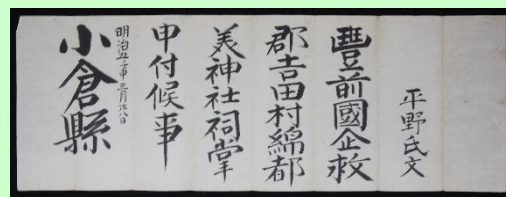 平野氏文
豐前國企救
郡吉田村綿都
美神社祠掌
申付候事
明治五壬申三月廿八日
小倉縣